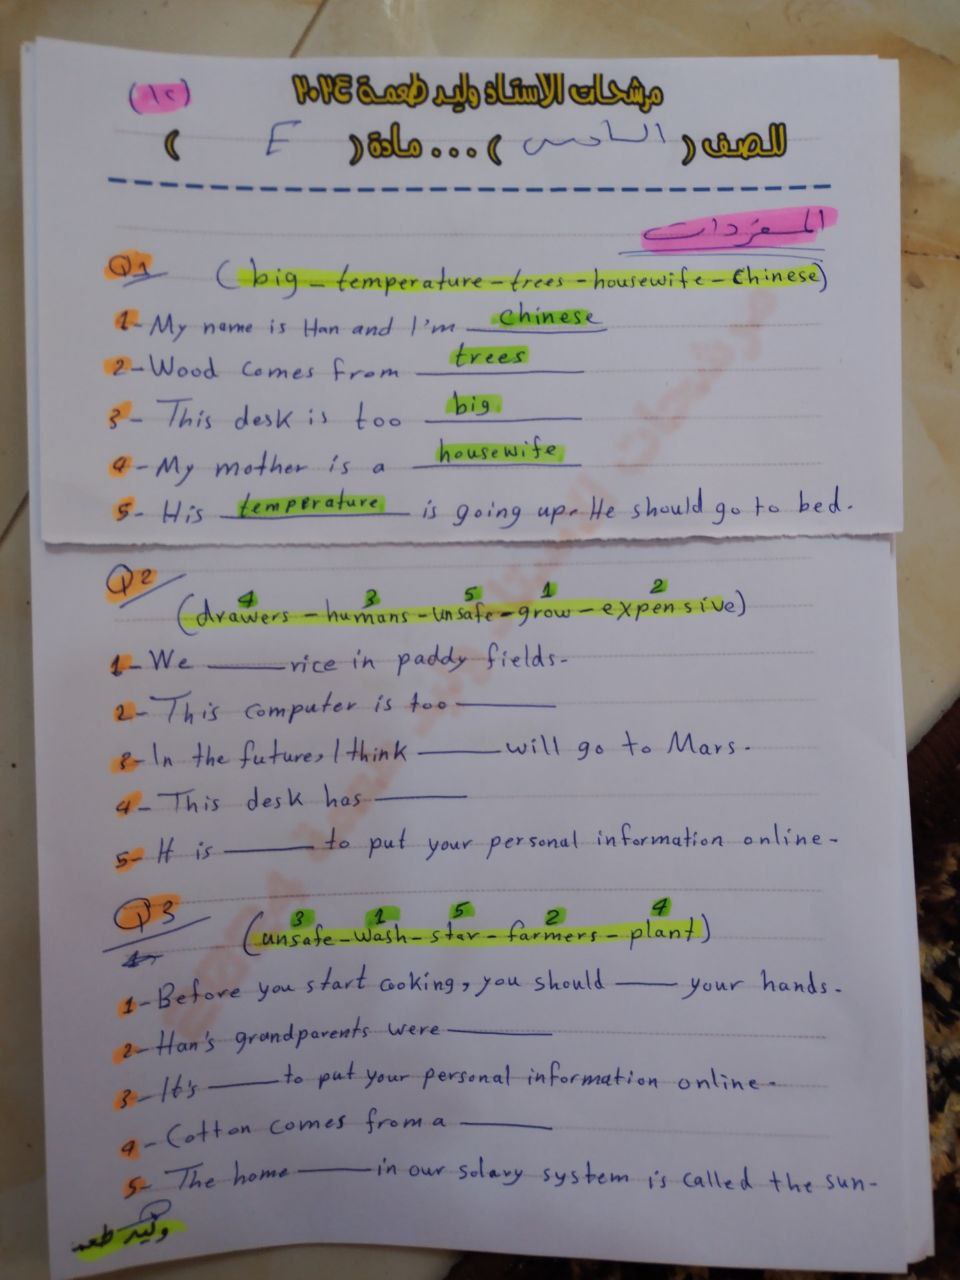 مرشحات الاستاذ وليد طعمة ٢٠٢٤
(١٢)
للصف ( السادس ) ... مادة ( E )
المفردات
Q1 (big - temperature - trees - housewife - Chinese)
1- My name is Han and I'm chinese
2- Wood comes from trees
3- This desk is too big
4- My mother is a housewife
5- His temperature is going up. He should go to bed.
Q2
4 3 5 1 2
(drawers - humans - unsafe - grow - expensive)
1- We ______ rice in paddy fields.
2- This computer is too ______
3- In the future, I think ______ will go to Mars.
4- This desk has ______
5- It is ______ to put your personal information online.
Q3
3 1 5 2 4
(unsafe - wash - star - farmers - plant)
1- Before you start cooking, you should ______ your hands.
2- Han's grandparents were ______
3- It's ______ to put your personal information online.
4- Cotton comes from a ______
5- The home ______ in our solary system is called the sun.
وليد طعمة